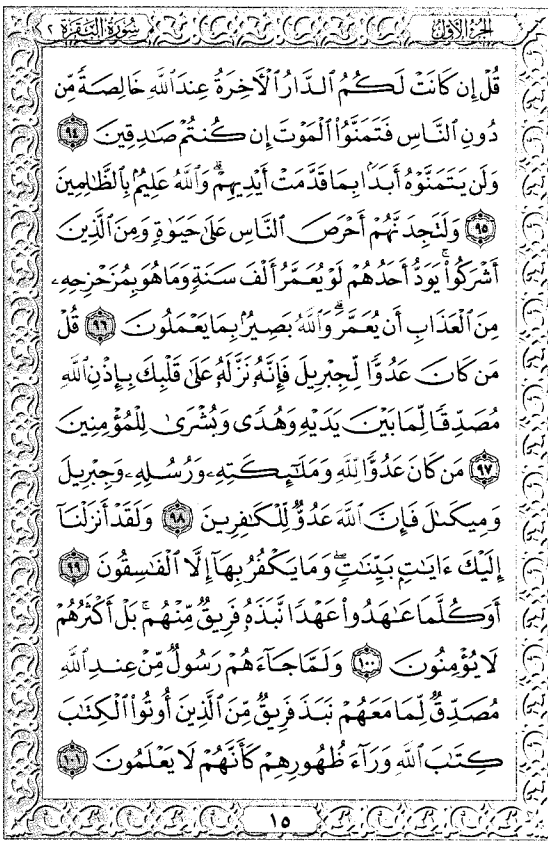 الجزء الأول سورة البقرة ٢
قُلْ إِن كَانَتْ لَكُمُ ٱلدَّارُ ٱلْأَخِرَةُ عِندَ ٱللَّهِ خَالِصَةً مِّن
دُونِ ٱلنَّاسِ فَتَمَنَّوُا۟ ٱلْمَوْتَ إِن كُنتُمْ صَٰدِقِينَ ٩٤
وَلَن يَتَمَنَّوْهُ أَبَدًۢا بِمَا قَدَّمَتْ أَيْدِيهِمْ ۗ وَٱللَّهُ عَلِيمٌۢ بِٱلظَّٰلِمِينَ
٩٥ وَلَتَجِدَنَّهُمْ أَحْرَصَ ٱلنَّاسِ عَلَىٰ حَيَوٰةٍ وَمِنَ ٱلَّذِينَ
أَشْرَكُوا۟ ۚ يَوَدُّ أَحَدُهُمْ لَوْ يُعَمَّرُ أَلْفَ سَنَةٍ وَمَا هُوَ بِمُزَحْزِحِهِۦ
مِنَ ٱلْعَذَابِ أَن يُعَمَّرَ ۗ وَٱللَّهُ بَصِيرٌۢ بِمَا يَعْمَلُونَ ٩٦ قُلْ
مَن كَانَ عَدُوًّا لِّجِبْرِيلَ فَإِنَّهُۥ نَزَّلَهُۥ عَلَىٰ قَلْبِكَ بِإِذْنِ ٱللَّهِ
مُصَدِّقًا لِّمَا بَيْنَ يَدَيْهِ وَهُدًى وَبُشْرَىٰ لِلْمُؤْمِنِينَ
٩٧ مَن كَانَ عَدُوًّا لِّلَّهِ وَمَلَٰٓئِكَتِهِۦ وَرُسُلِهِۦ وَجِبْرِيلَ
وَمِيكَىٰلَ فَإِنَّ ٱللَّهَ عَدُوٌّ لِّلْكَٰفِرِينَ ٩٨ وَلَقَدْ أَنزَلْنَآ
إِلَيْكَ ءَايَٰتٍۭ بَيِّنَٰتٍ ۖ وَمَا يَكْفُرُ بِهَآ إِلَّا ٱلْفَٰسِقُونَ ٩٩
أَوَكُلَّمَا عَٰهَدُوا۟ عَهْدًا نَّبَذَهُۥ فَرِيقٌ مِّنْهُم ۚ بَلْ أَكْثَرُهُمْ
لَا يُؤْمِنُونَ ١٠٠ وَلَمَّا جَآءَهُمْ رَسُولٌ مِّنْ عِندِ ٱللَّهِ
مُصَدِّقٌ لِّمَا مَعَهُمْ نَبَذَ فَرِيقٌ مِّنَ ٱلَّذِينَ أُوتُوا۟ ٱلْكِتَٰبَ
كِتَٰبَ ٱللَّهِ وَرَآءَ ظُهُورِهِمْ كَأَنَّهُمْ لَا يَعْلَمُونَ ١٠١
١٥